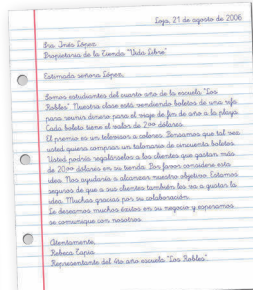 Loja, 21 de agosto de 2006
Sra. Inés López
Propietaria de la Tienda "Vida Libre"
Estimada señora López,
Somos estudiantes del cuarto año de la escuela "Los
Robles". Nuestra clase está vendiendo boletos de una rifa
para reunir dinero para el viaje de fin de año a la playa.
Cada boleto tiene el valor de 2⁰⁰ dólares.
El premio es un televisor a colores. Pensamos que tal vez
usted quiera comprar un talonario de cincuenta boletos.
Usted podría regalárselos a los clientes que gastan más
de 20⁰⁰ dólares en su tienda. Por favor considere esta
idea. Nos ayudaría a alcanzar nuestro objetivo. Estamos
seguros de que a sus clientes también les va a gustar la
idea. Muchas gracias por su colaboración.
Le deseamos muchos éxitos en su negocio y esperamos
se comunique con nosotros.
Atentamente,
Rebeca Tapia
Representante del 4to año escuela "Los Robles"